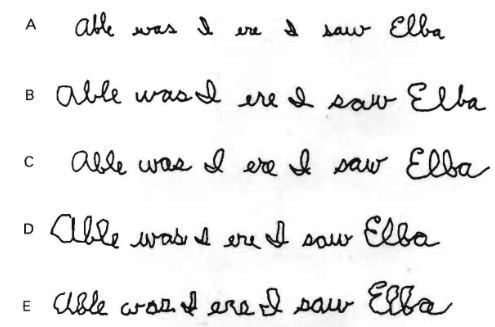 A able was I ere I saw Elba
B able was I ere I saw Elba
C able was I ere I saw Elba
D able was I ere I saw Elba
E able was I ere I saw Elba